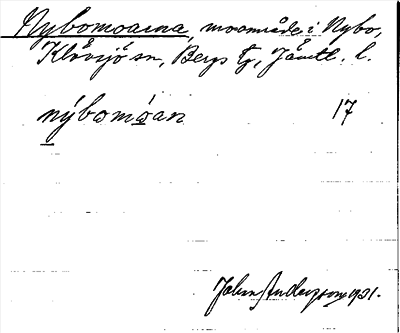 Nybomoarna, moområde i Nybo,
Klövsjö sn, Bergs tg, Jämtl. l.
nýbomóan 17
John Anderson 1921.